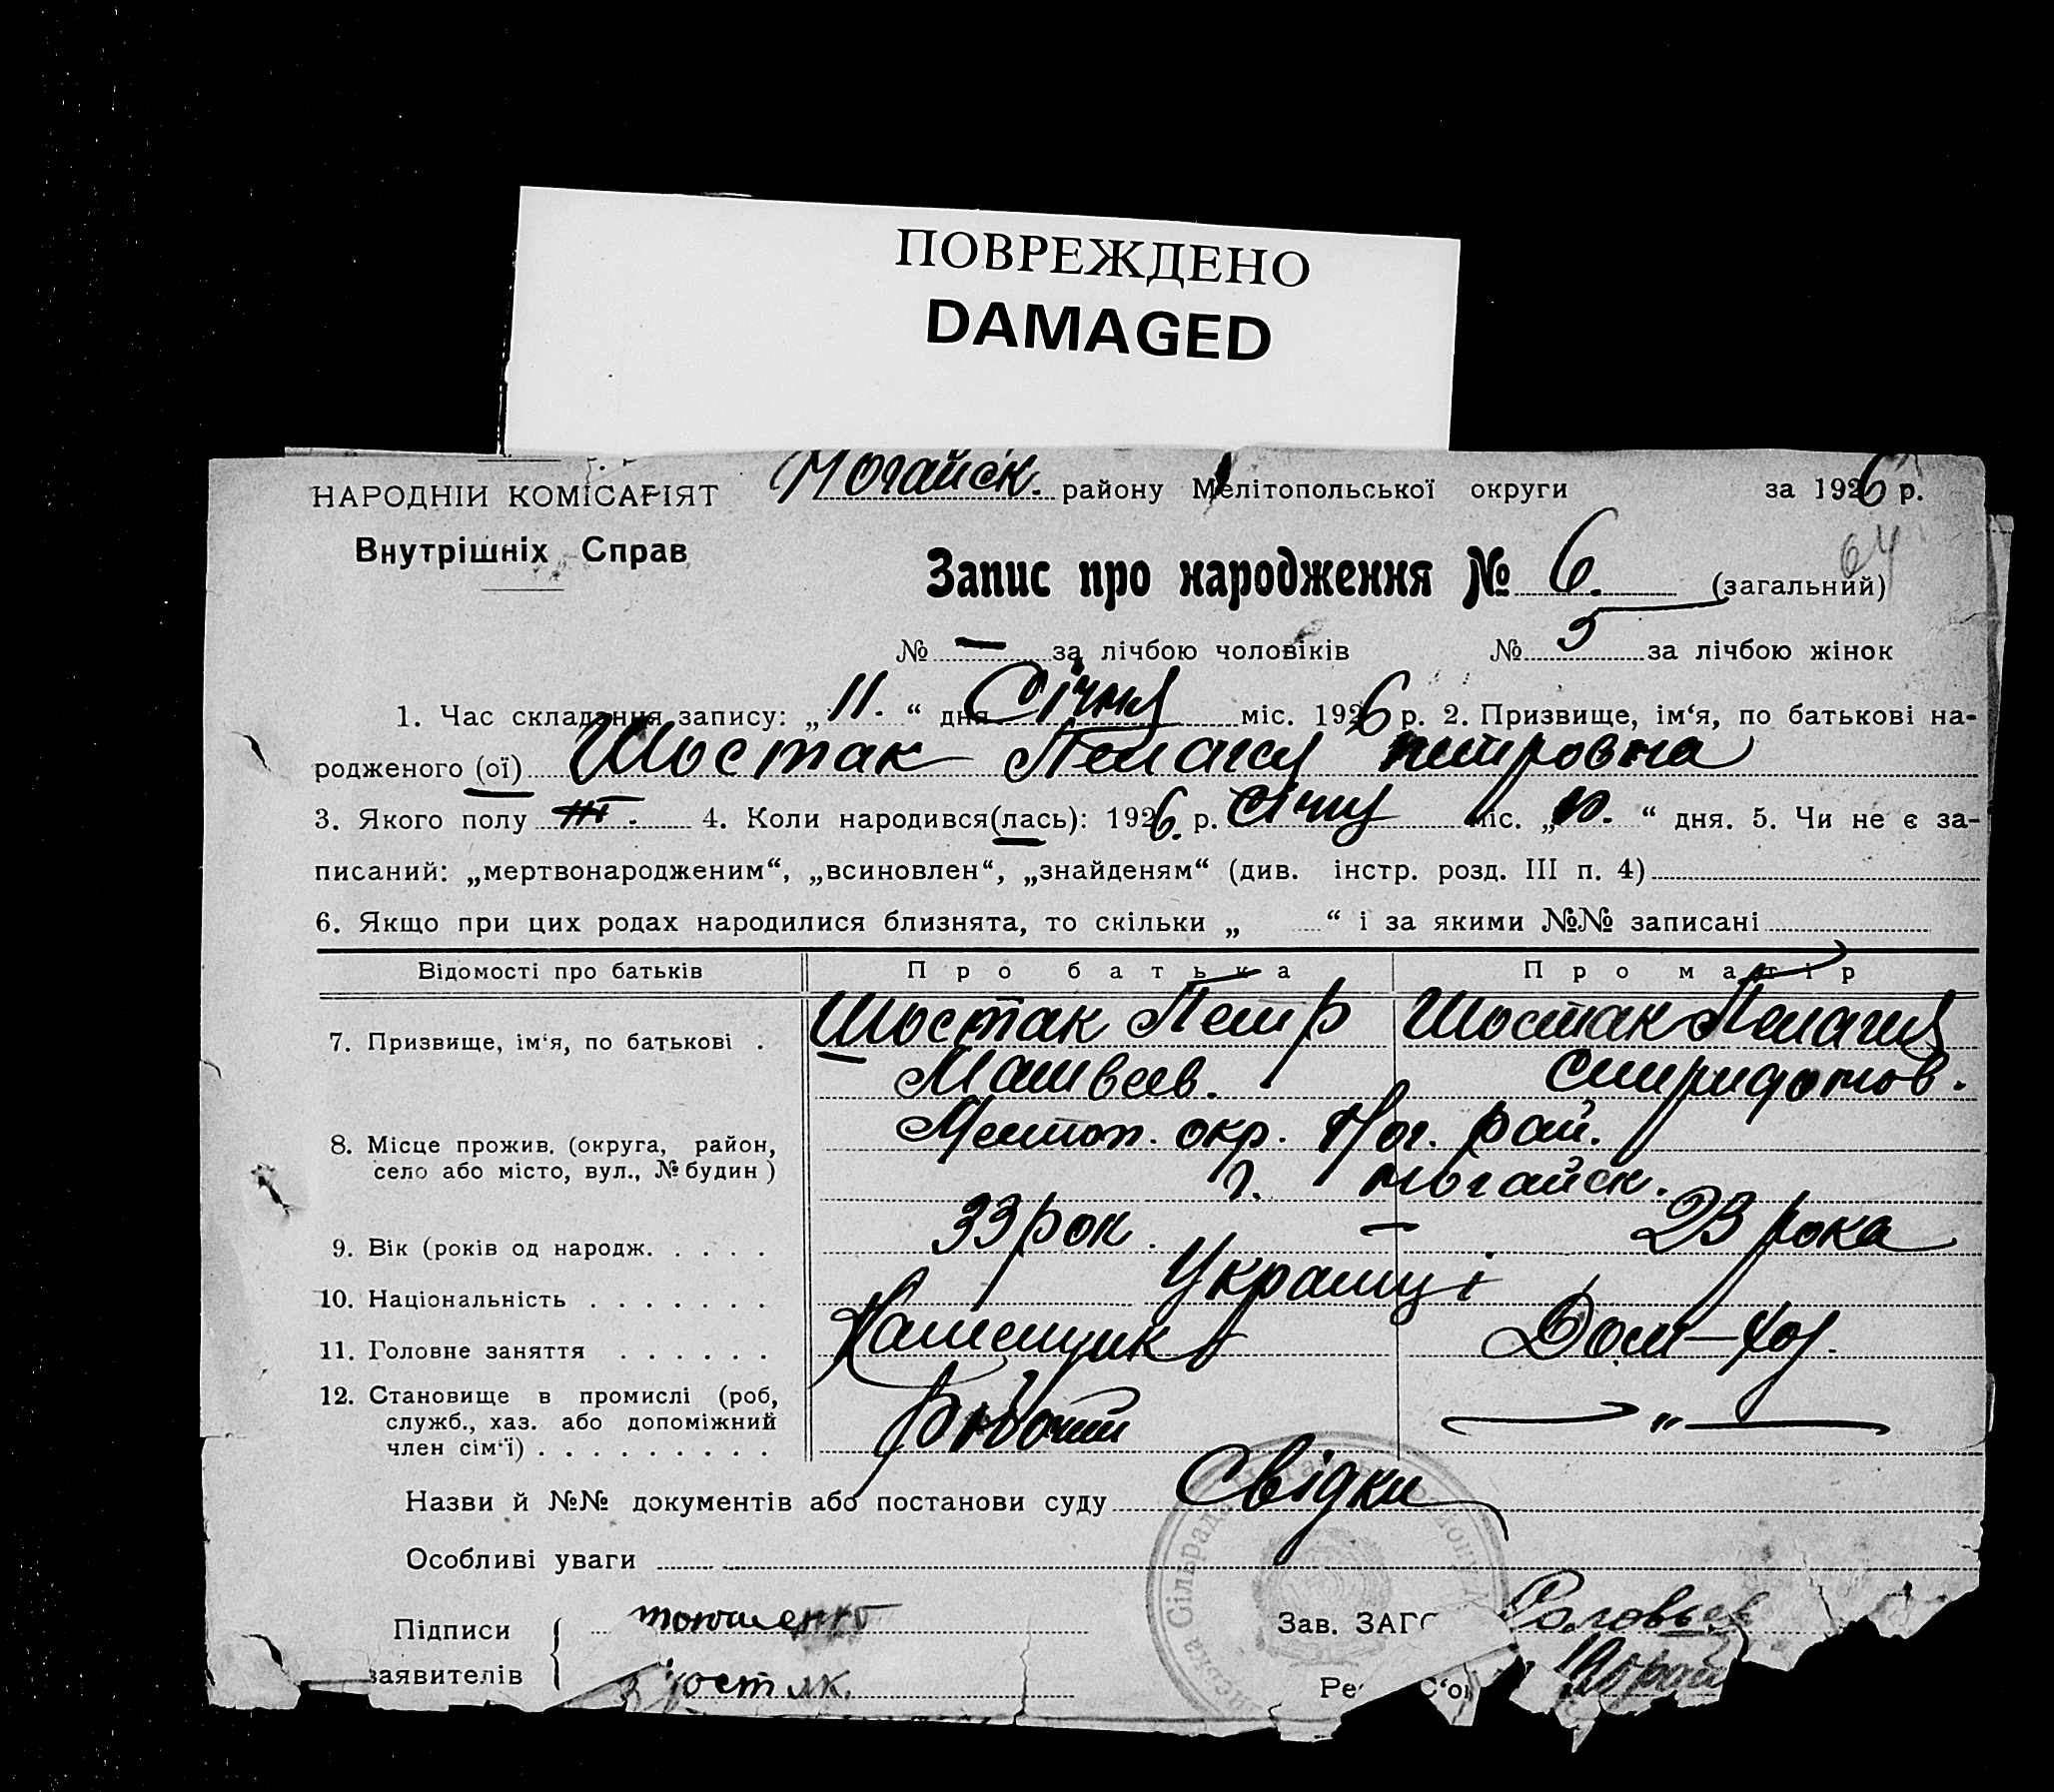 ПОВРЕЖДЕНО
DAMAGED
НАРОДНІЙ КОМІСАРІЯТ Ногайск. району Мелітопольської округи за 1926 р.
Внутрішніх Справ
64
Запис про народження № 6. (загальний)
№ — за лічбою чоловіків № 5 за лічбою жінок
1. Час складання запису: „11.“ дня Січня міс. 1926 р. 2. Призвище, ім‘я, по батькові на-
родженого (ої) Шостак Пелагея Петровна
3. Якого полу 4. Коли народився(лась): 1926. р. Січня міс. „10.“ дня. 5. Чи не є за-
писаний: „мертвонародженим“, „всиновлен“, „знайденям“ (див. інстр. розд. III п. 4)
6. Якщо при цих родах народилися близнята, то скільки „ “ і за якими №№ записані
Відомості про батьків Про батька Про матір
7. Призвище, ім‘я, по батькові . Шостак Петр Шостак Пелагея
Матвеев. Спиридонов.
8. Місце прожив. (округа, район, Мелитоп. окр. Ног. рай.
село або місто, вул., № будин) г. Ногайск.
9. Вік (років од народж. . . . . 33 рок. — 23 рока
10. Національність . . . . . . . Українці
11. Головне заняття . . . . . . Каменщик Дом-хоз.
12. Становище в промислі (роб, Рабочий — „ —
служб., хаз. або допоміжний
член сім‘ї) . . . . . . . . .
Назви й №№ документів або постанови суду Свідки
Особливі уваги
Підписи Зав. ЗАГС Соловьев
заявителів остак.